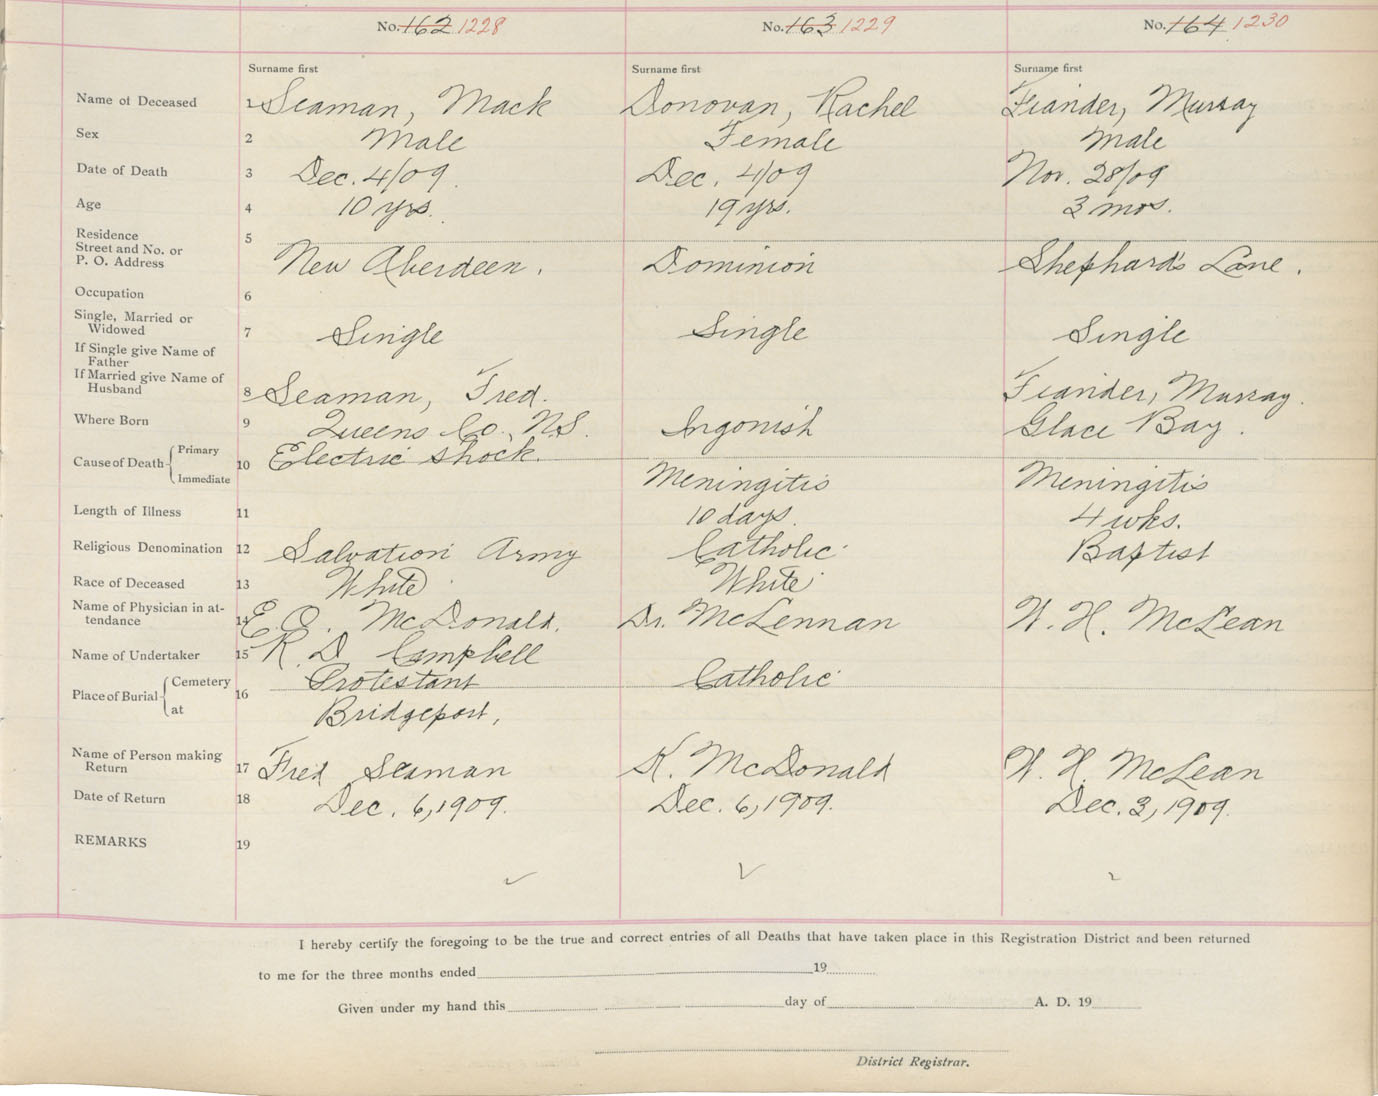 No. 162 1228 No. 163 1229 No. 164 1230
Surname first Surname first Surname first
Name of Deceased 1 Seaman, Mack Donovan, Rachel Fiander, Murray
Sex 2 Male Female Male
Date of Death 3 Dec. 4/09. Dec. 4/09 Nov. 28/09
Age 4 10 yrs. 19 yrs. 3 mos.
Residence 5
Street and No. or
P. O. Address New Aberdeen. Dominion Shephard's Lane.
Occupation 6
Single, Married or
Widowed 7 Single Single Single
If Single give Name of
Father
If Married give Name of
Husband 8 Seaman, Fred. Fiander, Murray.
Where Born 9 Queens Co., N.S. Ingonish Glace Bay.
Cause of Death Primary 10 Electric shock.
Immediate Meningitis Meningitis
Length of Illness 11 10 days. 4 wks.
Religious Denomination 12 Salvation Army Catholic Baptist
Race of Deceased 13 White White
Name of Physician in at-
tendance 14 E. O. McDonald. Dr. McLennan W. H. McLean
Name of Undertaker 15 R. D Campbell
Place of Burial Cemetery 16 Protestant Catholic
at Bridgeport,
Name of Person making
Return 17 Fred Seaman K. McDonald W. H. McLean
Date of Return 18 Dec. 6, 1909. Dec. 6, 1909. Dec. 3, 1909
REMARKS 19
I hereby certify the foregoing to be the true and correct entries of all Deaths that have taken place in this Registration District and been returned
to me for the three months ended 19
Given under my hand this day of A. D. 19
District Registrar.